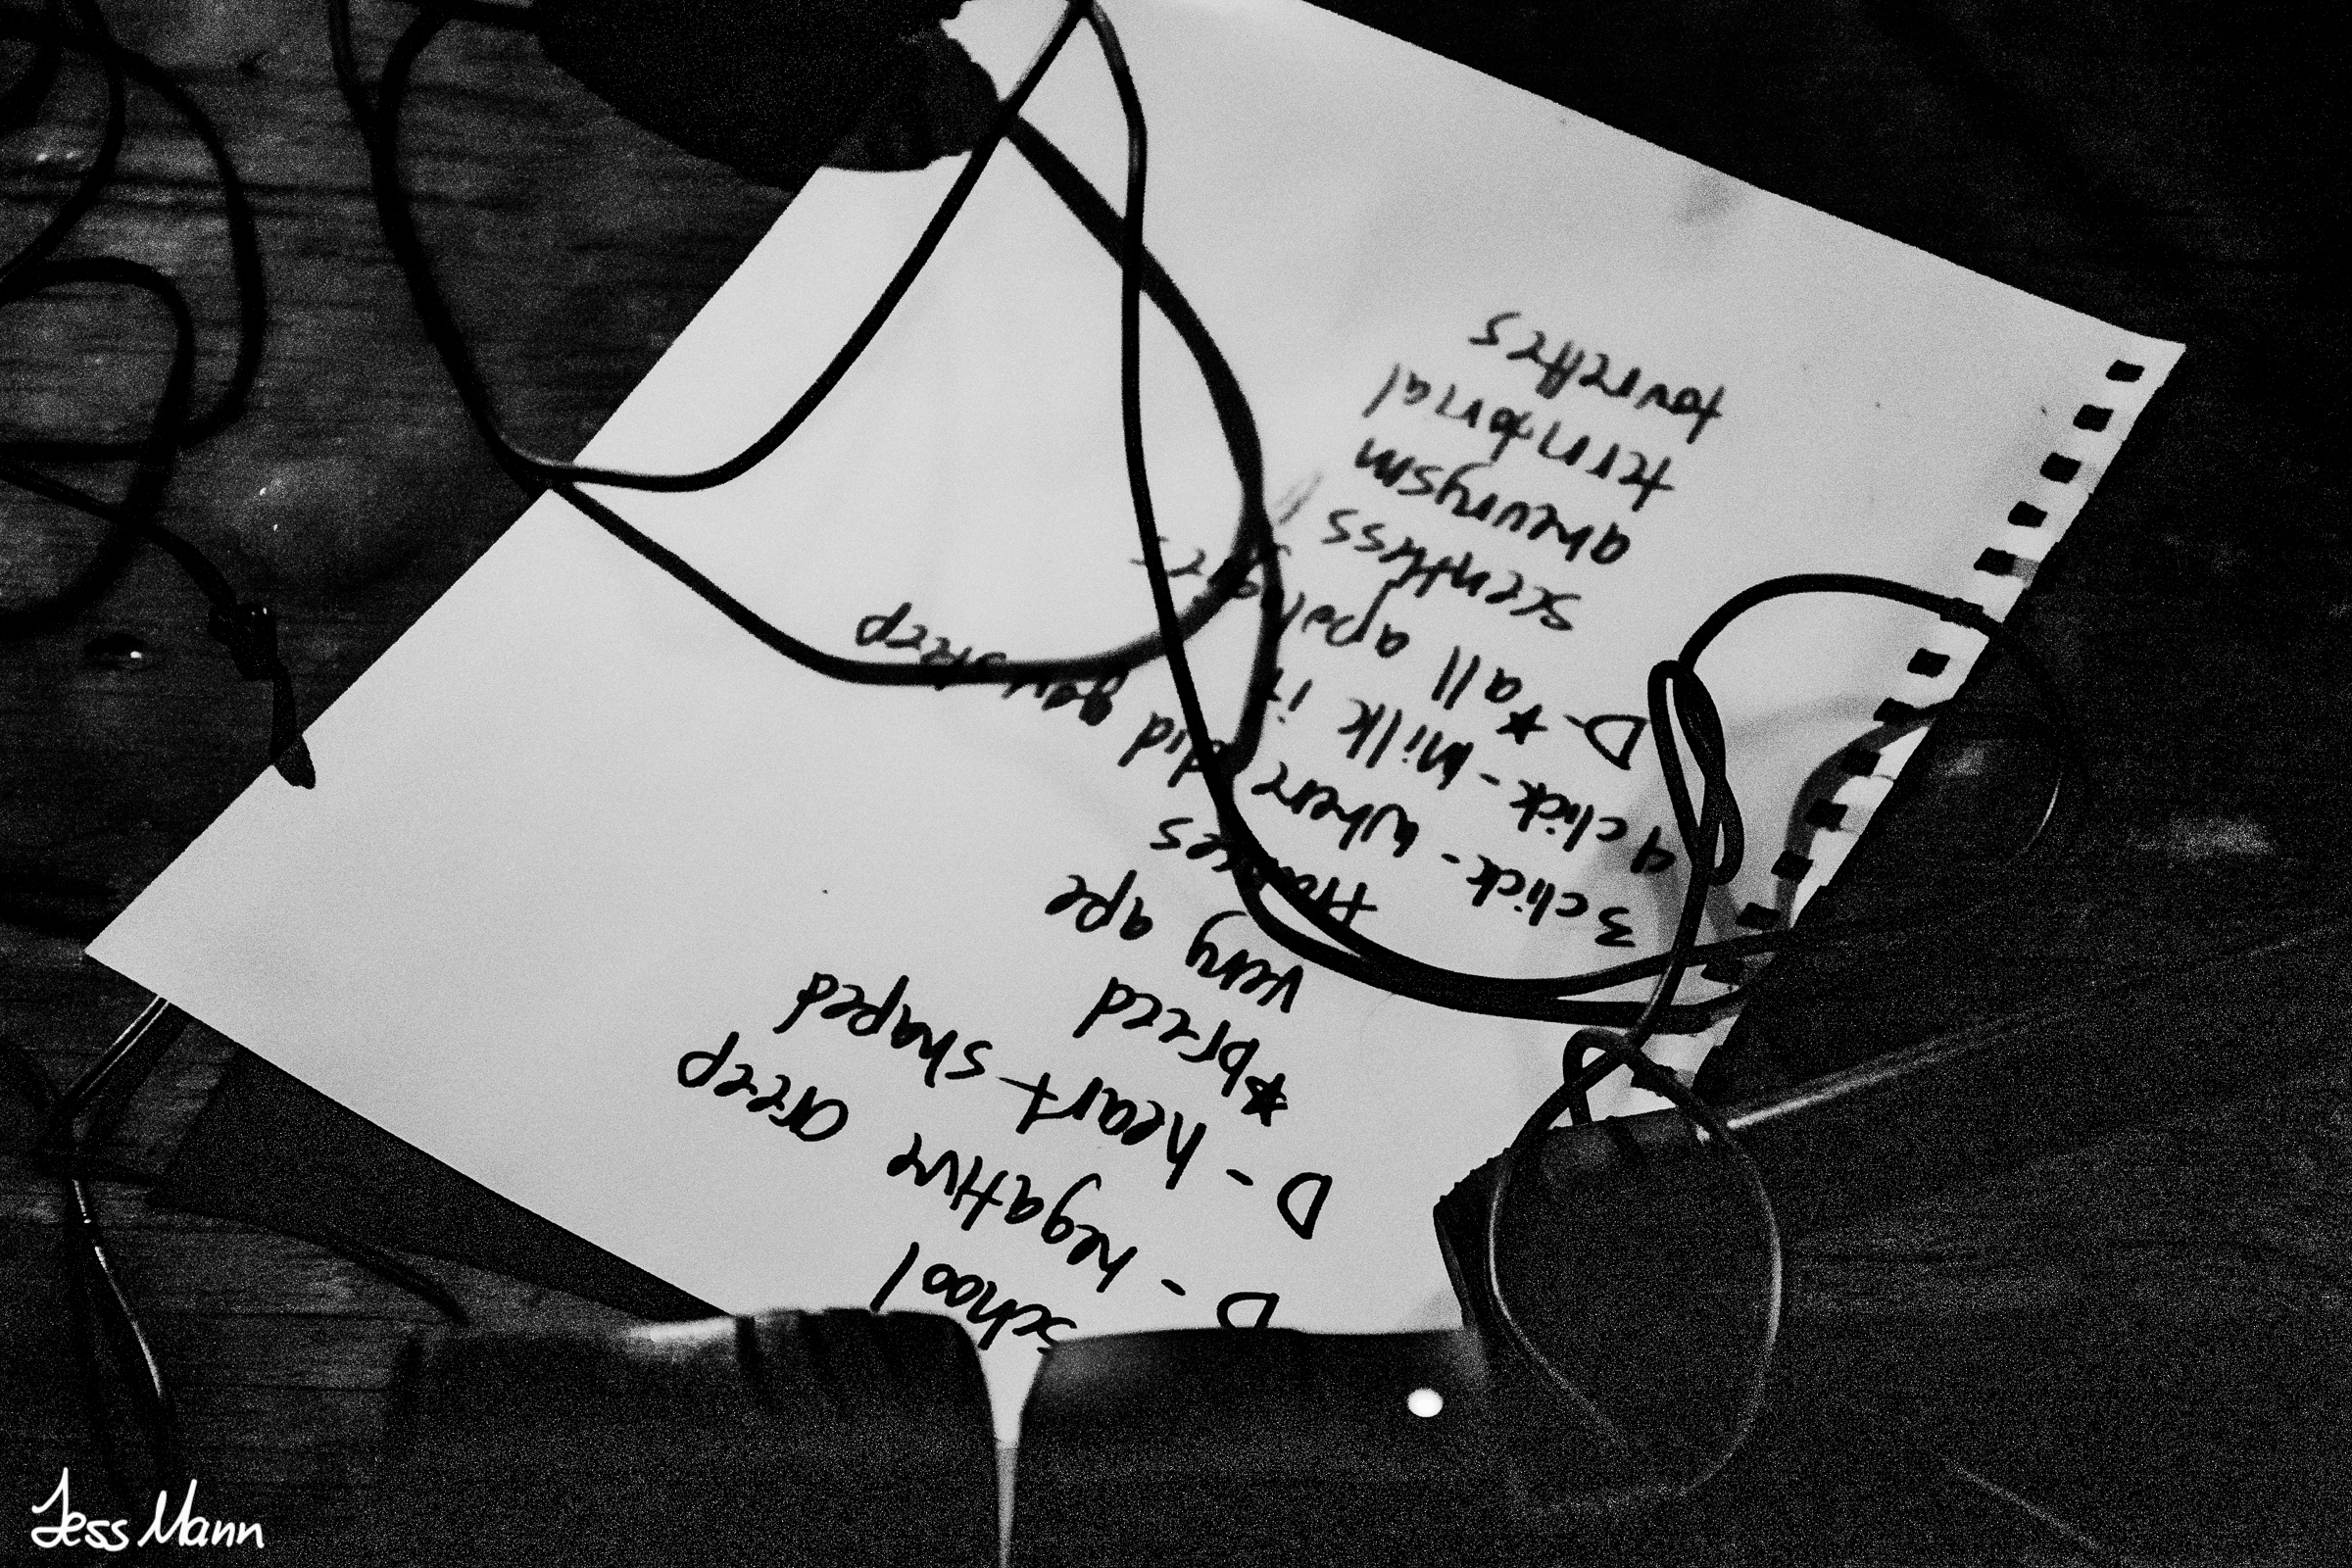 school
D - negative creep
D - heart shaped
*breed
very ape
frances
3 click - where did you sleep
4 click - milk it
D - *all apologies
scentless
aneurysm
territorial
tourettes
Jess Mann